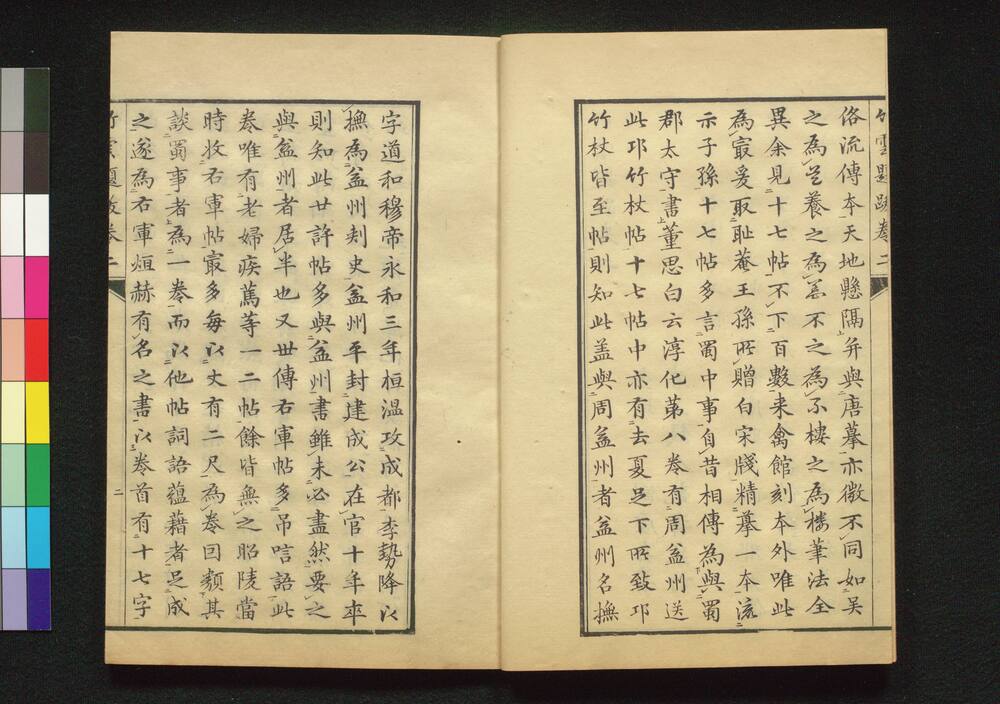 竹雲題跋卷二
俗流傳本天地懸隔并與唐摹亦微不同如吳
之為㠯養之為羕不之為ふ樓之為楼筆法全
異余見十七帖不下百數来禽館刻本外唯此
為冣爰取耻菴王孫所贈白宋牋精摹一本流
示子孫十七帖多言蜀中事自昔相傳為與蜀
郡太守書董思白云淳化第八卷有周益州送
此邛竹杖帖十七帖中亦有去夏足下所致邛
竹杖皆至帖則知此盖與周益州者益州名撫
字道和穆帝永和三年桓温攻成都李勢降以
撫為益州刾史益州平封建成公在官十年卒
則知此廿許帖多與益州書雖未必盡然要之
與益州者居半也又世傳右軍帖多吊唁語此
卷唯有老婦疾篤等一二帖餘皆無之昭陵當
時收右軍帖冣多每以丈有二尺為卷回類其
談蜀事者為一卷而以他帖詞語蘊藉者足成
之遂為右軍烜赫有名之書以卷首有十七字
竹雲題跋卷二
二